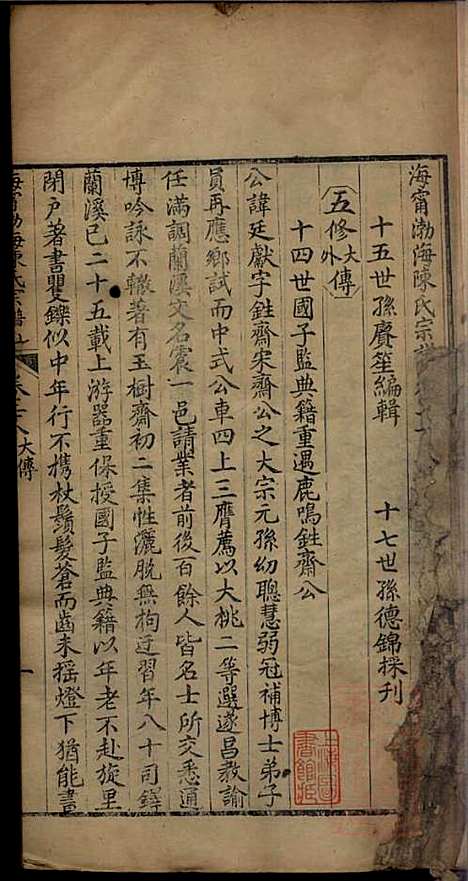 海甯渤海陳氏宗譜卷二十八
十五世孫賡笙編輯　十七世孫德錦採刊
五修大傳外
十四世國子監典籍重遇鹿鳴銼齋公
公諱廷獻字銼齋宋齋公之大宗元孫幼聰慧弱冠補博士弟子
員再應鄉試而中式公車四上三膺薦以大桃二等選遂昌教諭
任滿調蘭溪文名震一邑請業者前後百餘人皆名士所交悉通
博吟詠不輟著有玉樹齋初二集性灑脫無拘迂習年八十司鐸
蘭溪已二十五載上游器重保授國子監典籍以年老不赴旋里
閉户著書矍鑠似中年行不攜杖鬚髮蒼而齒未摇燈下猶能畫
海甯渤海陳氏宗譜五 大傳 一